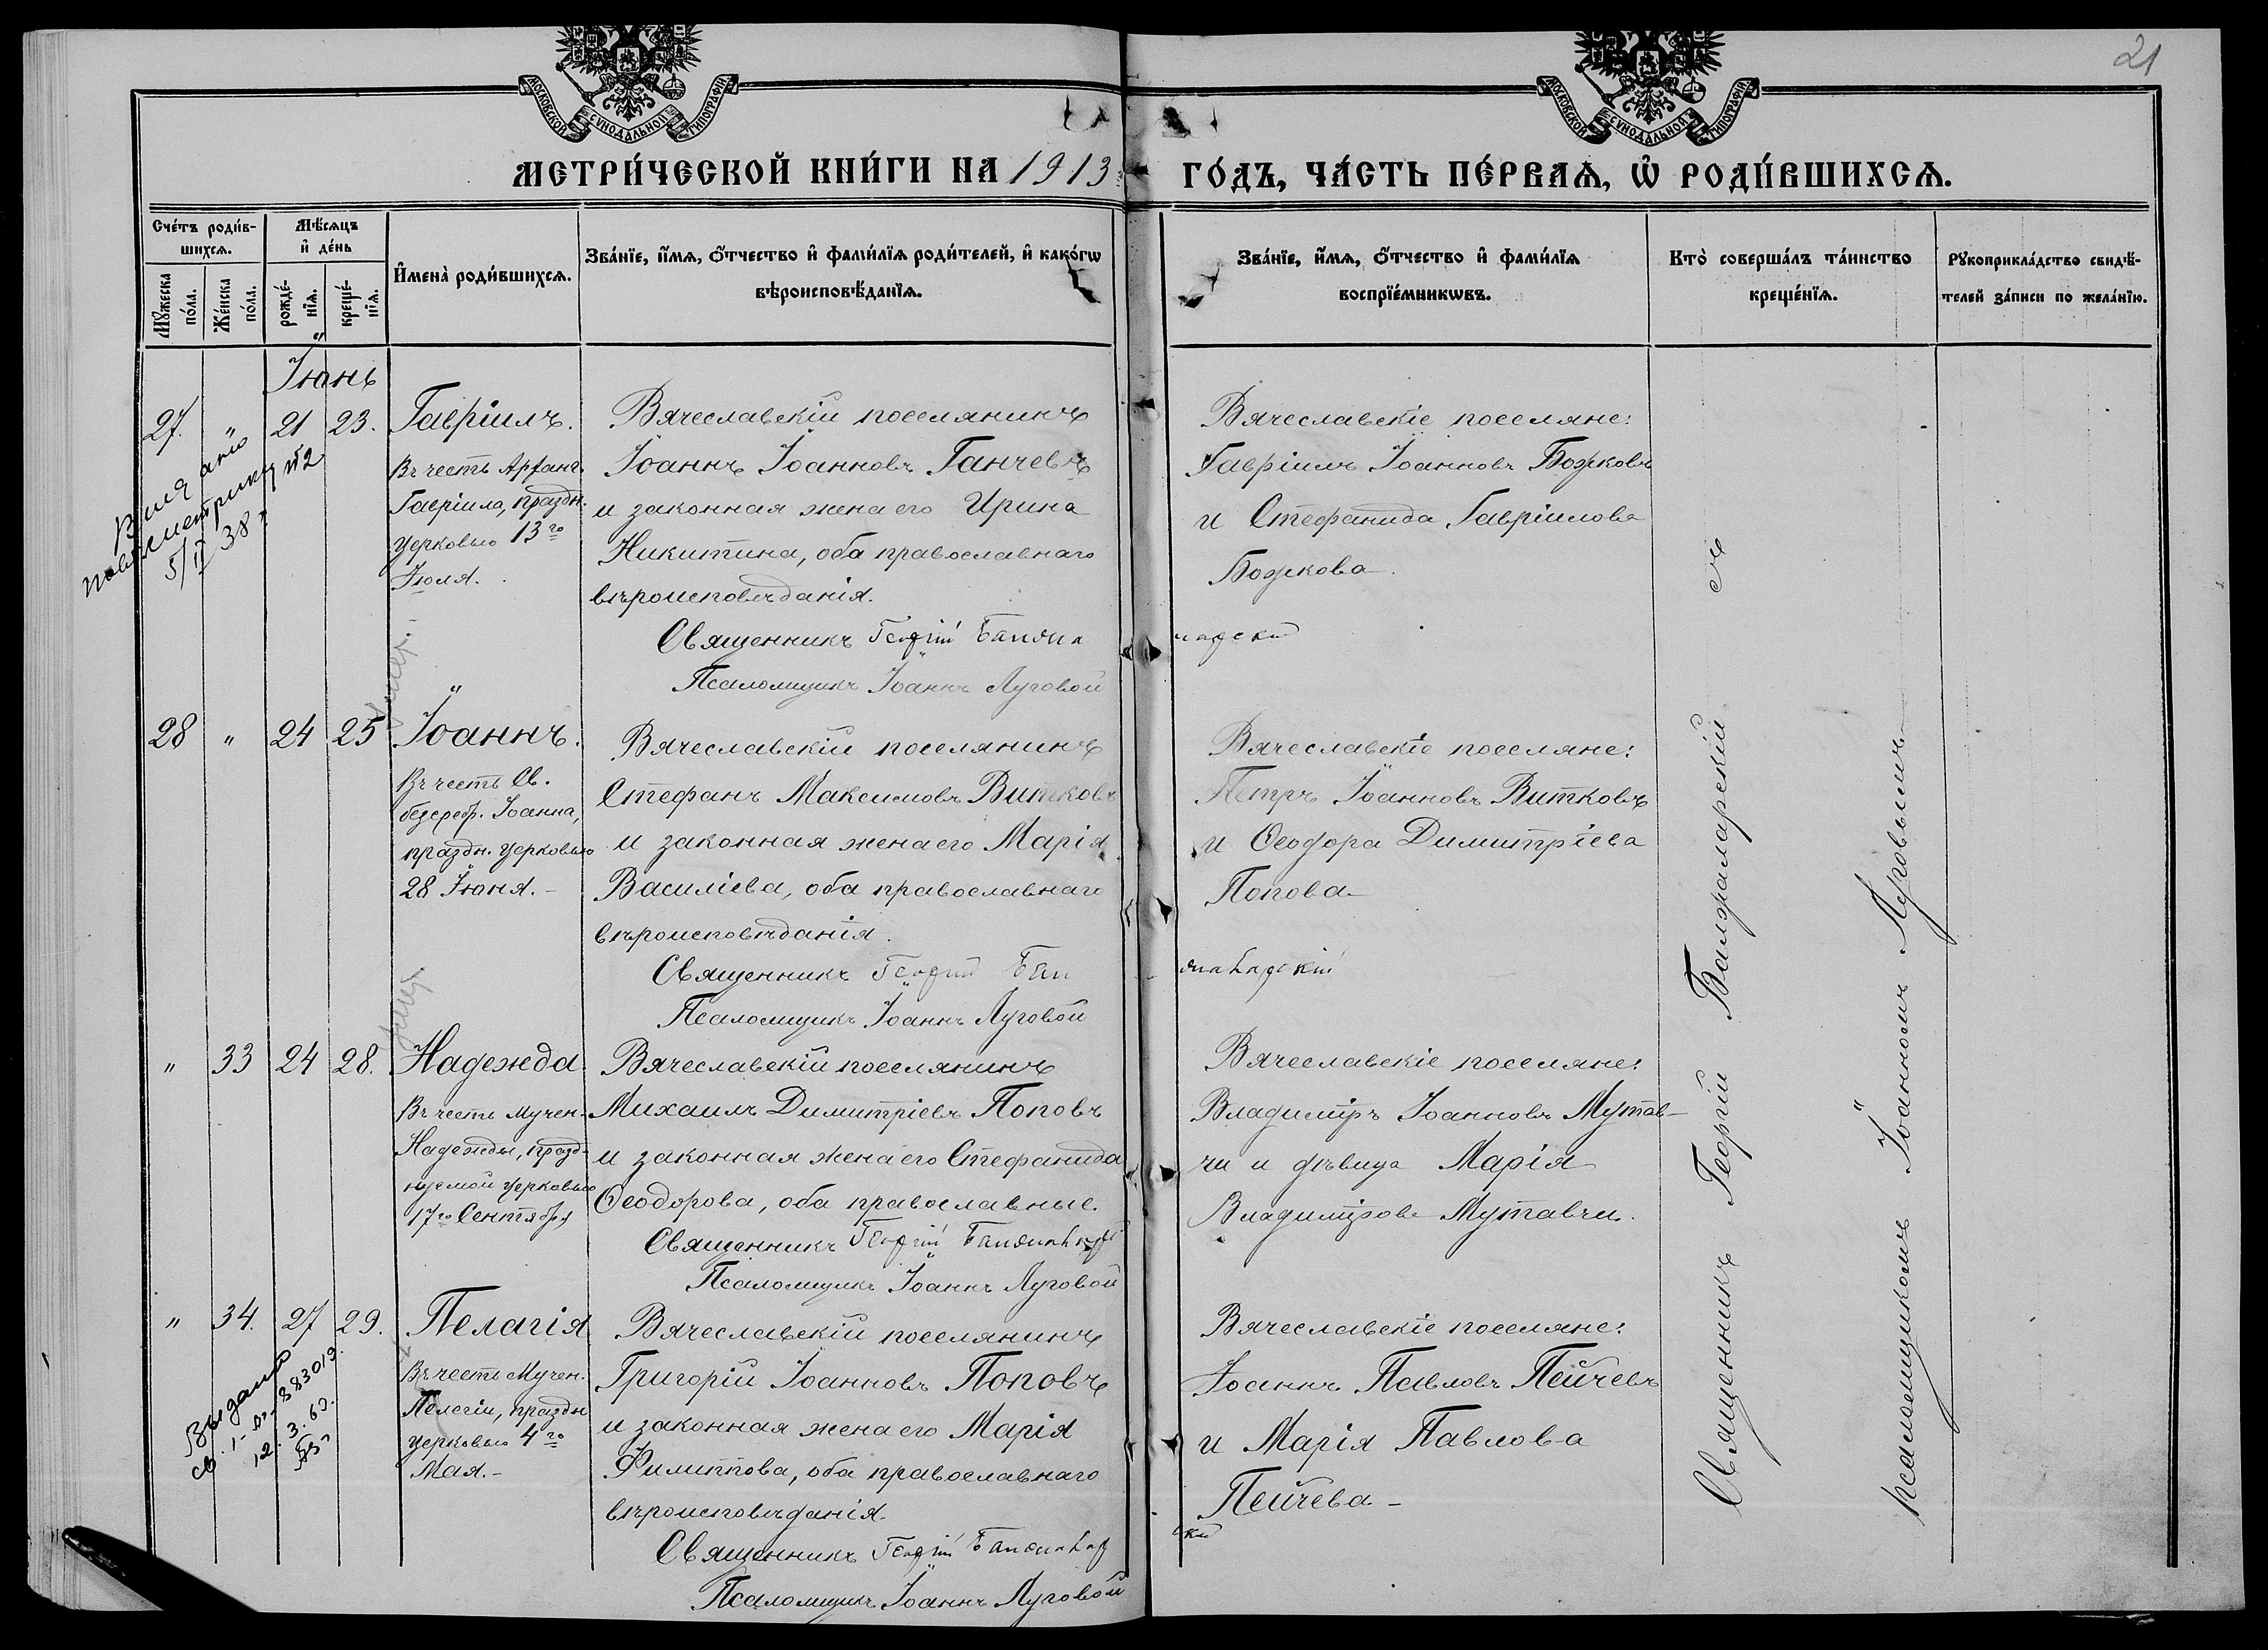 21
МОСКОВСКОЙ СѴНОДАЛЬНОЙ ТИПОГРАФІИ
МОСКОВСКОЙ СѴНОДАЛЬНОЙ ТИПОГРАФІИ
МЕТРИ́ЧЕСКОЙ КНИ́ГИ НА 1913 ГО́ДЪ, ЧА́СТЬ ПЕ́РВАѦ, Ѡ҆ РОДИ́ВШИХСѦ.
Сче́тъ роди́в-
шихсѧ.
Мꙋ́жеска по́ла.
Же́нска по́ла.
Мѣ́сѧцъ
и҆ де́нь
рожде́-
нїѧ.
креще́-
нїѧ.
И҆мена̀ роди́вшихсѧ.
Зва́нїе, и҆́мѧ, ѻ҆́тчество и҆ фами́лїѧ роди́телей, и҆ како́гѡ
вѣроисповѣ́данїѧ.
Зва́нїе, и҆́мѧ, ѻ҆́тчество и҆ фами́лїѧ
воспрїе́мникѡвъ.
Кто̀ соверша́лъ та́инство
креще́нїѧ.
Рꙋкоприкла́дство свидѣ́-
телей за́писи по жела́нїю.
Іюнь
27. " 21 23. Гавріилъ.
Въ честь Арханг.
Гавріила, праздн.
церковью 13го
Іюля.
Вячеславскій поселянинъ
Іоаннъ Іоанновъ Ганчевъ
и законная жена его Ирина
Никитина, оба православнаго
вѣроисповѣданія.
Священникъ Георгій
Псаломщикъ Іоаннъ Луговой
Вячеславскіе поселяне:
Гавріилъ Іоанновъ Божковъ
и Стефанида Гавріилова
Божкова.
№2
5/II 38 г.
28 " 24 25 Іоаннъ.
Въ честь Св.
безсребр. Іоанна,
праздн. церковью
28 Іюня.-
Вячеславскій поселянинъ
Стефанъ Максимовъ Витковъ
и законная жена его Марія
Василіева, оба православнаго
вѣроисповѣданія.
Священникъ Георгій
Псаломщикъ Іоаннъ Луговой
Вячеславскіе поселяне:
Петръ Іоанновъ Витковъ
и Ѳеодора Димитріева
Попова
" 33 24 28. Надежда
Въ честь мучен.
Надежды, празд-
нуемой церковью
17го Сентября
Вячеславскій поселянинъ
Михаилъ Димитріевъ Поповъ
и законная жена его Стефанида
Ѳеодорова, оба православные.
Священникъ Георгій
Псаломщикъ Іоаннъ Луговой
Вячеславскіе поселяне:
Владиміръ Іоанновъ Мутав-
чи и дѣвица Марія
Владимірова Мутавчи.
" 34. 27 29. Пелагія
Въ честь Мучен.
Пелагіи, праздн
церковью 4го
Мая.-
Вячеславскій поселянинъ
Григорій Іоанновъ Поповъ
и законная жена его Марія
Филиппова, оба православнаго
вѣроисповѣданія.
Священникъ Георгій
Псаломщикъ Іоаннъ Луговой
Вячеславскіе поселяне:
Іоаннъ Павловъ Пейчевъ
и Марія Павлова
Пейчева-
Выдано
св. 1- 383019.
12.3.69.
Священникъ Георгій съ
псаломщикомъ Іоанномъ Луговымъ